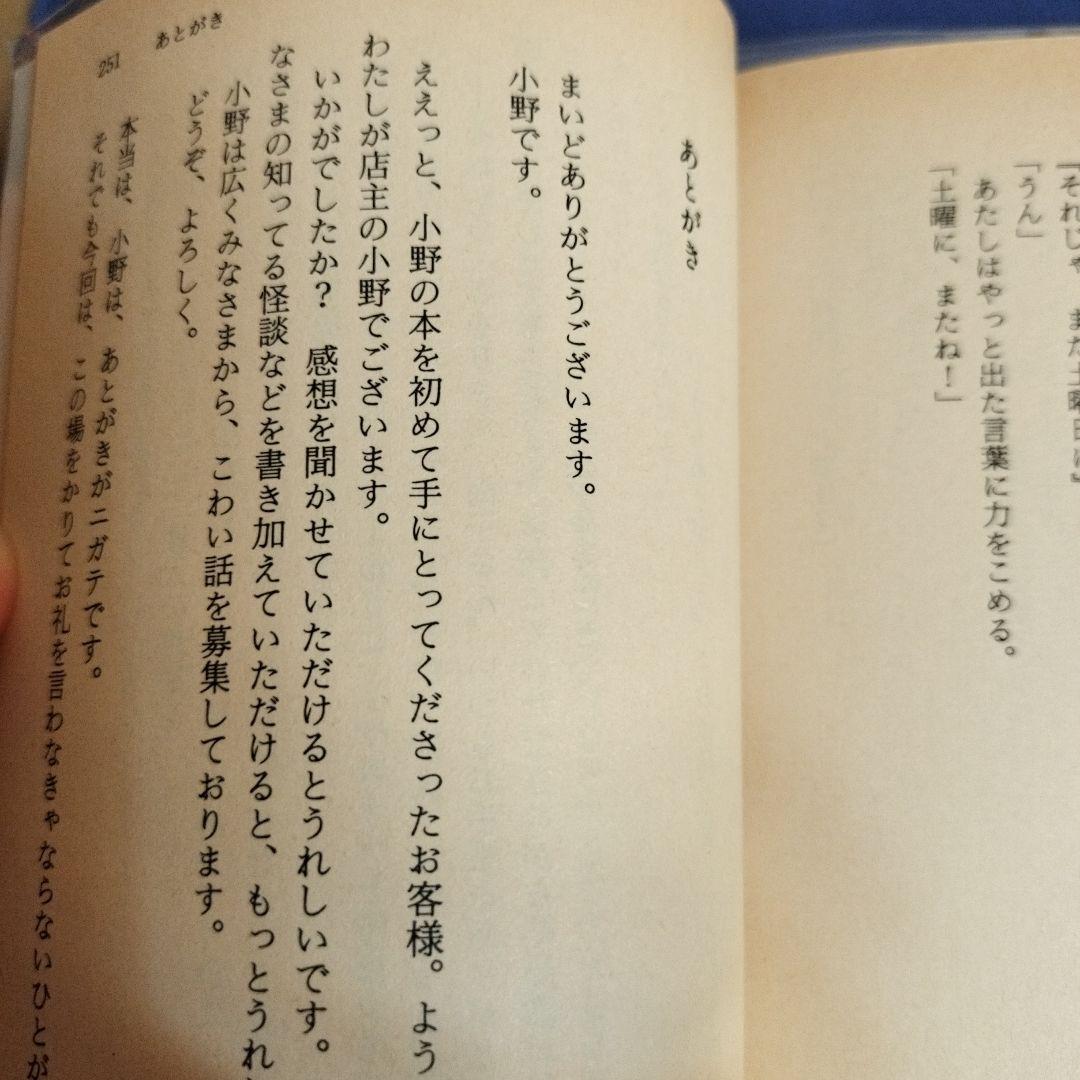 「それじゃ、また土曜日に」
「うん」
あたしはやっと出た言葉に力をこめる。
「土曜に、またね！」
あとがき
まいどありがとうございます。
小野です。
ええっと、小野の本を初めて手にとってくださったお客様。よう
わたしが店主の小野でございます。
いかがでしたか？　感想を聞かせていただけるとうれしいです。
なさまの知ってる怪談などを書き加えていただけると、もっとうれ
小野は広くみなさまから、こわい話を募集しております。
どうぞ、よろしく。
本当は、小野は、あとがきがニガテです。
それでも今回は、この場をかりてお礼を言わなきゃならないひとが
251
あとがき